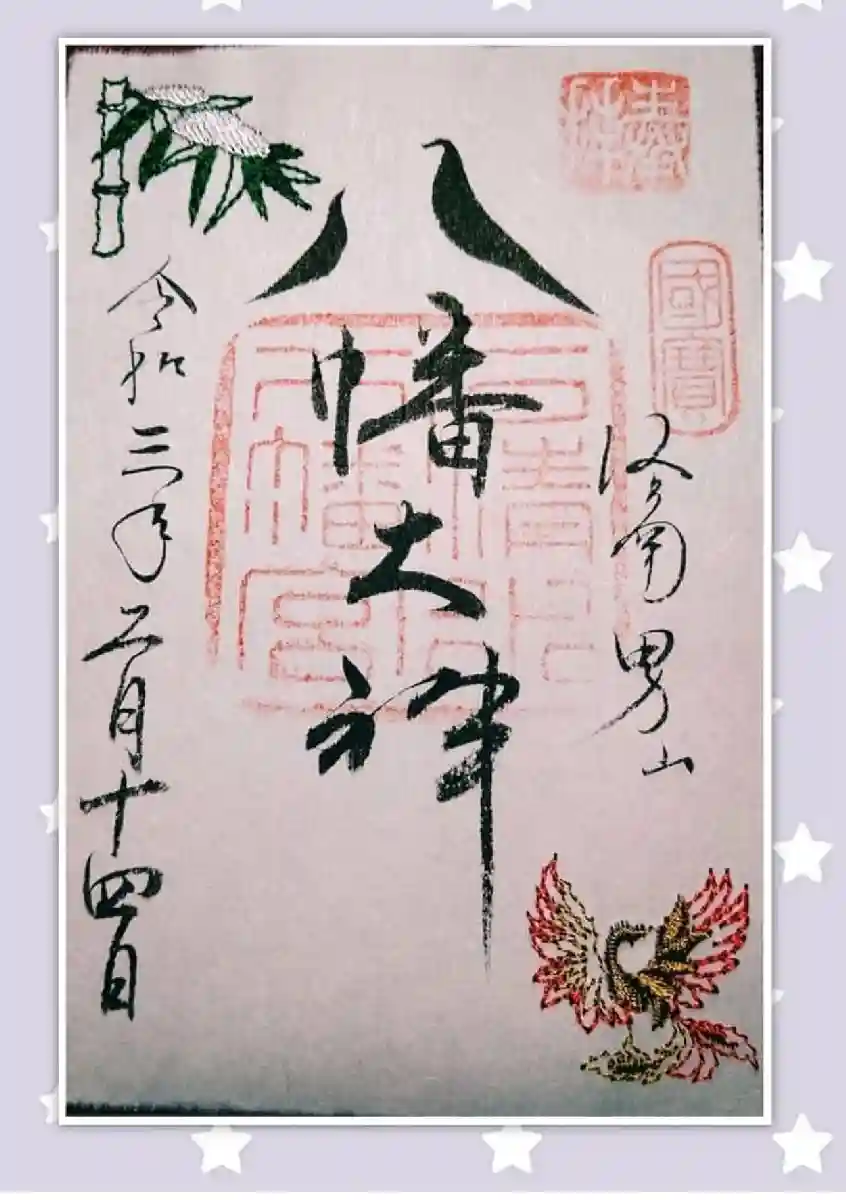 奉拝
國寶
洛南男山
八幡大神
石清水八幡宮
令和三年二月十四日